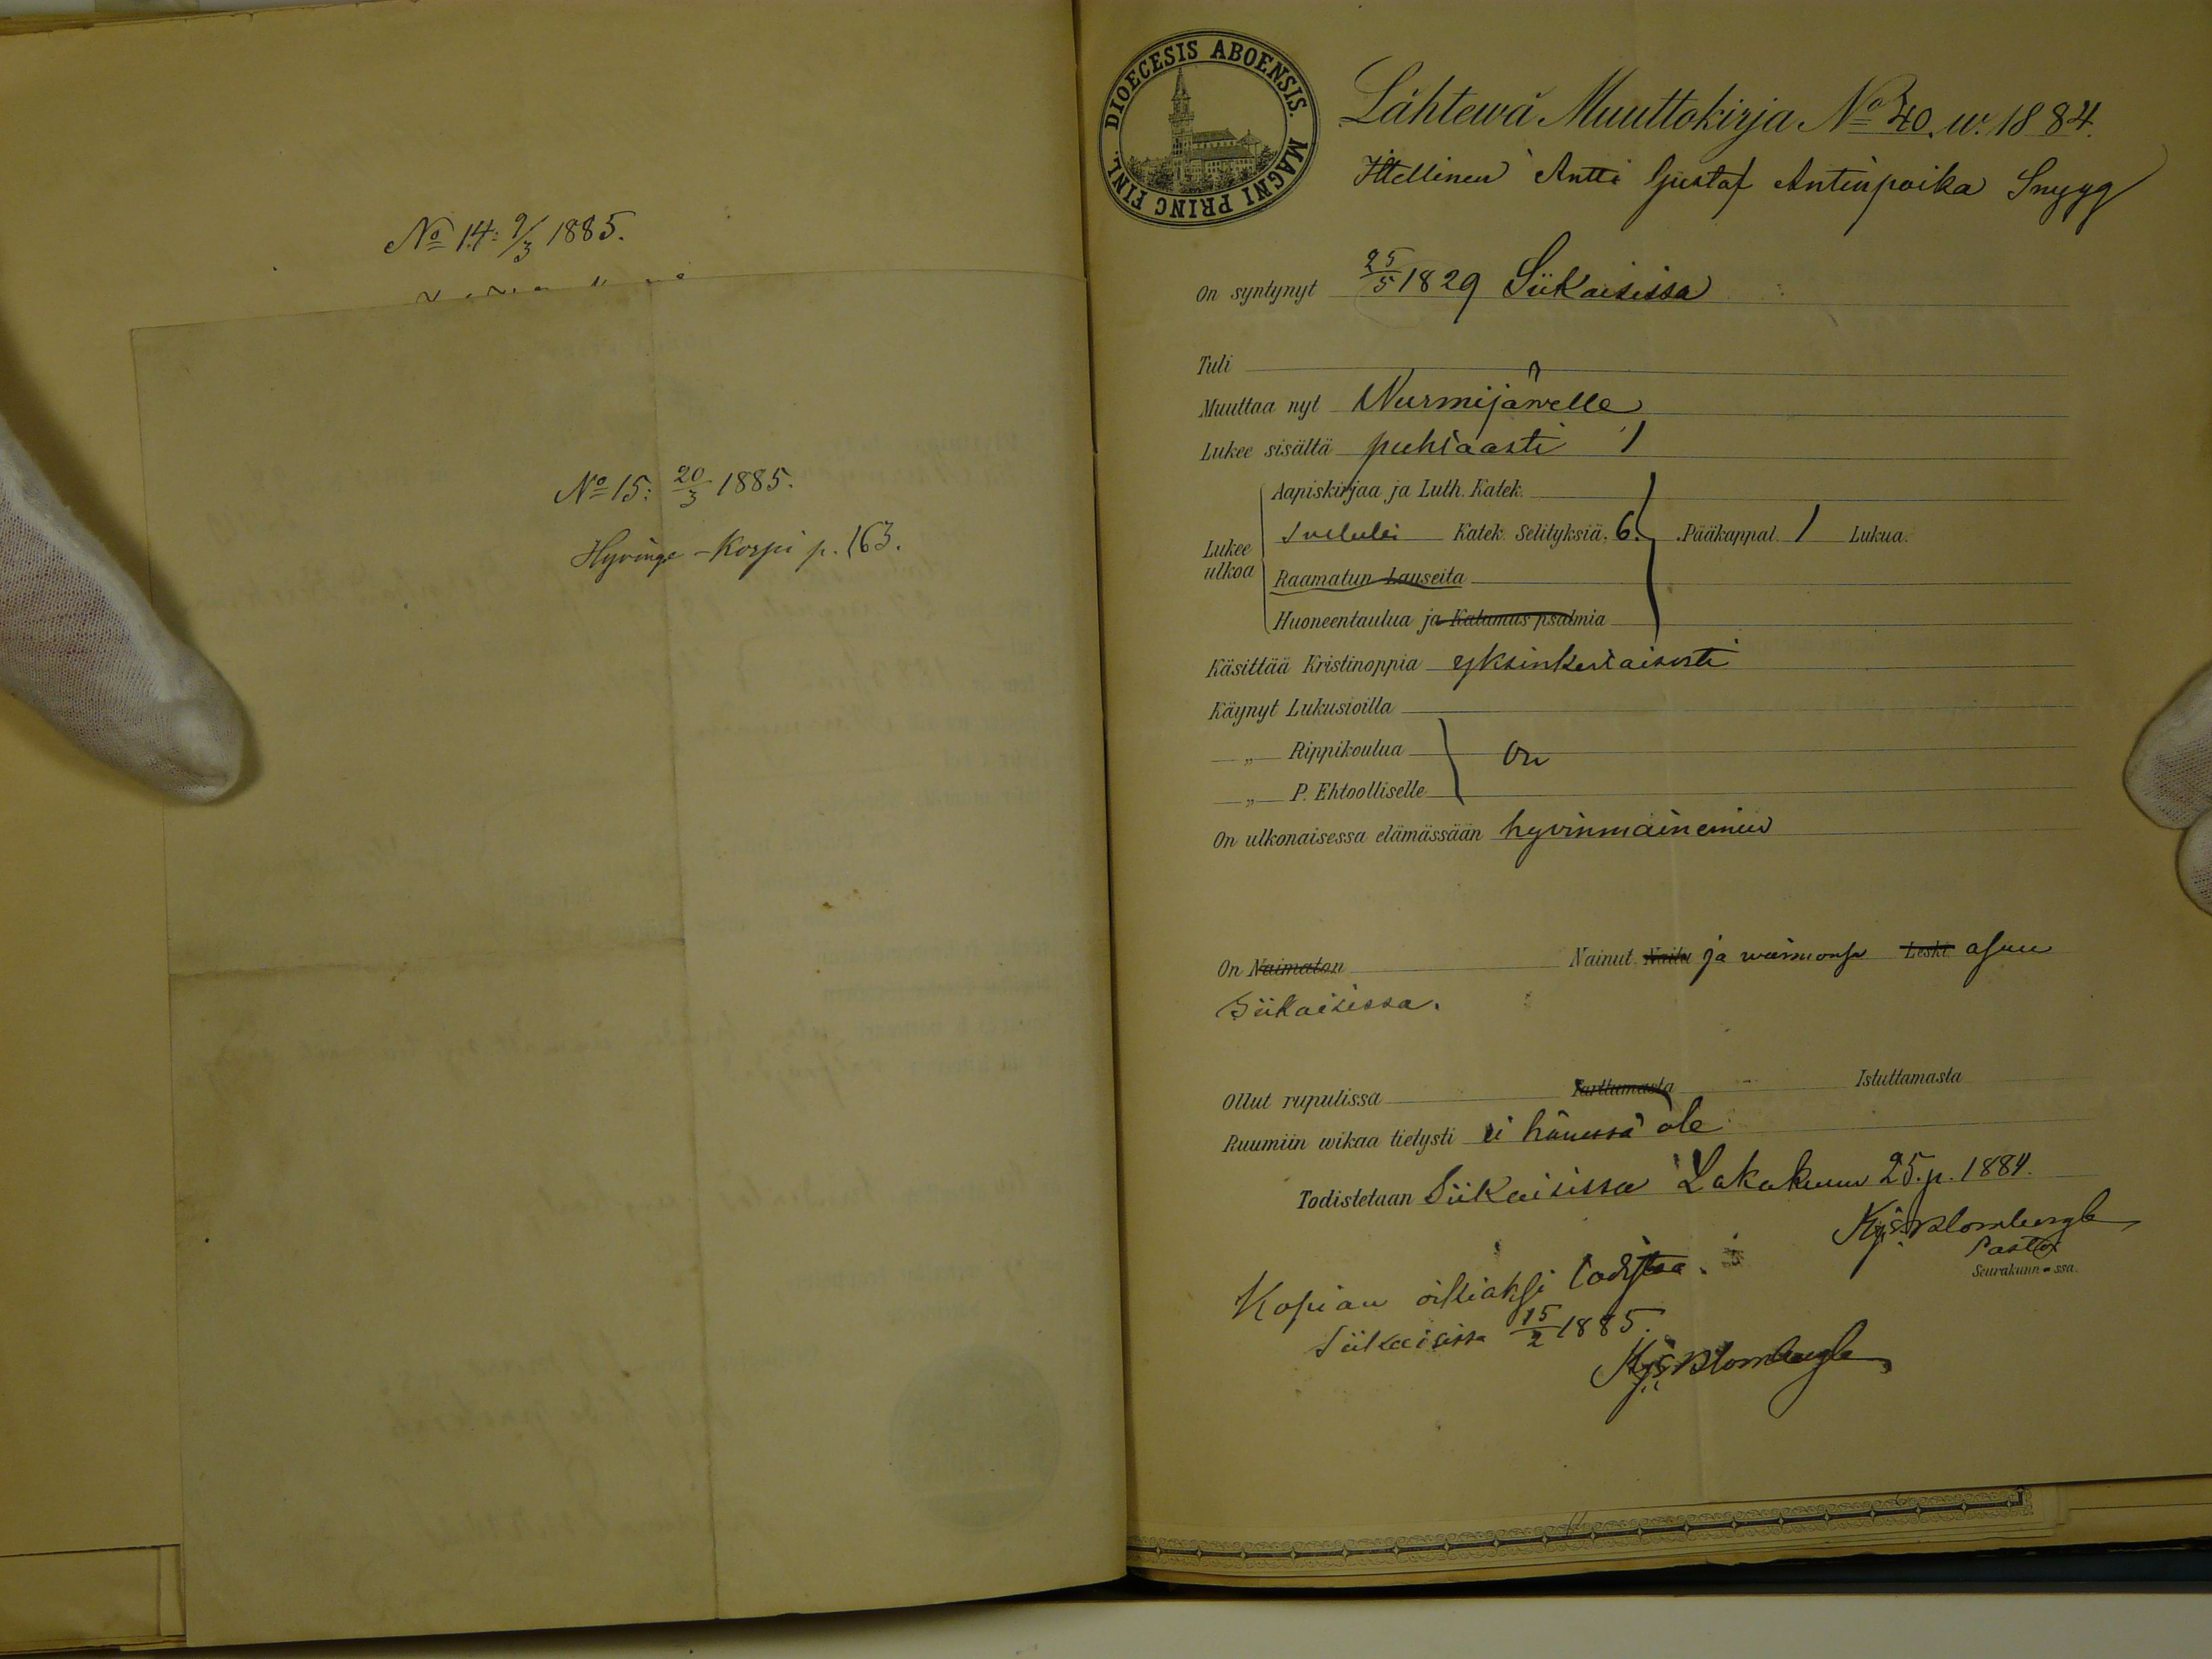 No 14: 9/3 1885.
No 15: 20/3 1885.
Hyvinge-Korpi p. 163.
DIOECESIS ABOENSIS. MAGNI PRINC FINL.
Lähtewä Muuttokirja No 40. w. 1884.
Itellinen Antti Gustaf Antinpoika Snygg
On syntynyt 25/5 1829 Siikaisissa
Tuli
Muuttaa nyt Nurmijärvelle
Lukee sisältä puhtaasti 1
Lukee ulkoa
Aapiskirjaa ja Luth. Katek.
Katek. Selityksiä. 6. Pääkappal. 1 Lukua.
Raamatun Lauseita
Huoneentaulua ja Katumus psalmia
Käsittää Kristinoppia yksinkertaisesti
Käynyt Lukusioilla
„ Rippikoulua on
„ P. Ehtoolliselle
On ulkonaisessa elämässään hyvinmaineinen
On Naimaton Nainut Naitu ja waimonsa Leski asuu
Siikaisissa.
Ollut rupulissa Tarttumasta Istuttamasta
Ruumiin wikaa tietysti ei hänessä ole
Todistetaan Siikaisissa Lokakuun 25. p. 1884.
Blombergh
Pastor
Seurakunn-ssa.
Kopian oikiaksi todistaa.
Siikaisissa 15/2 1885.
Blombergh